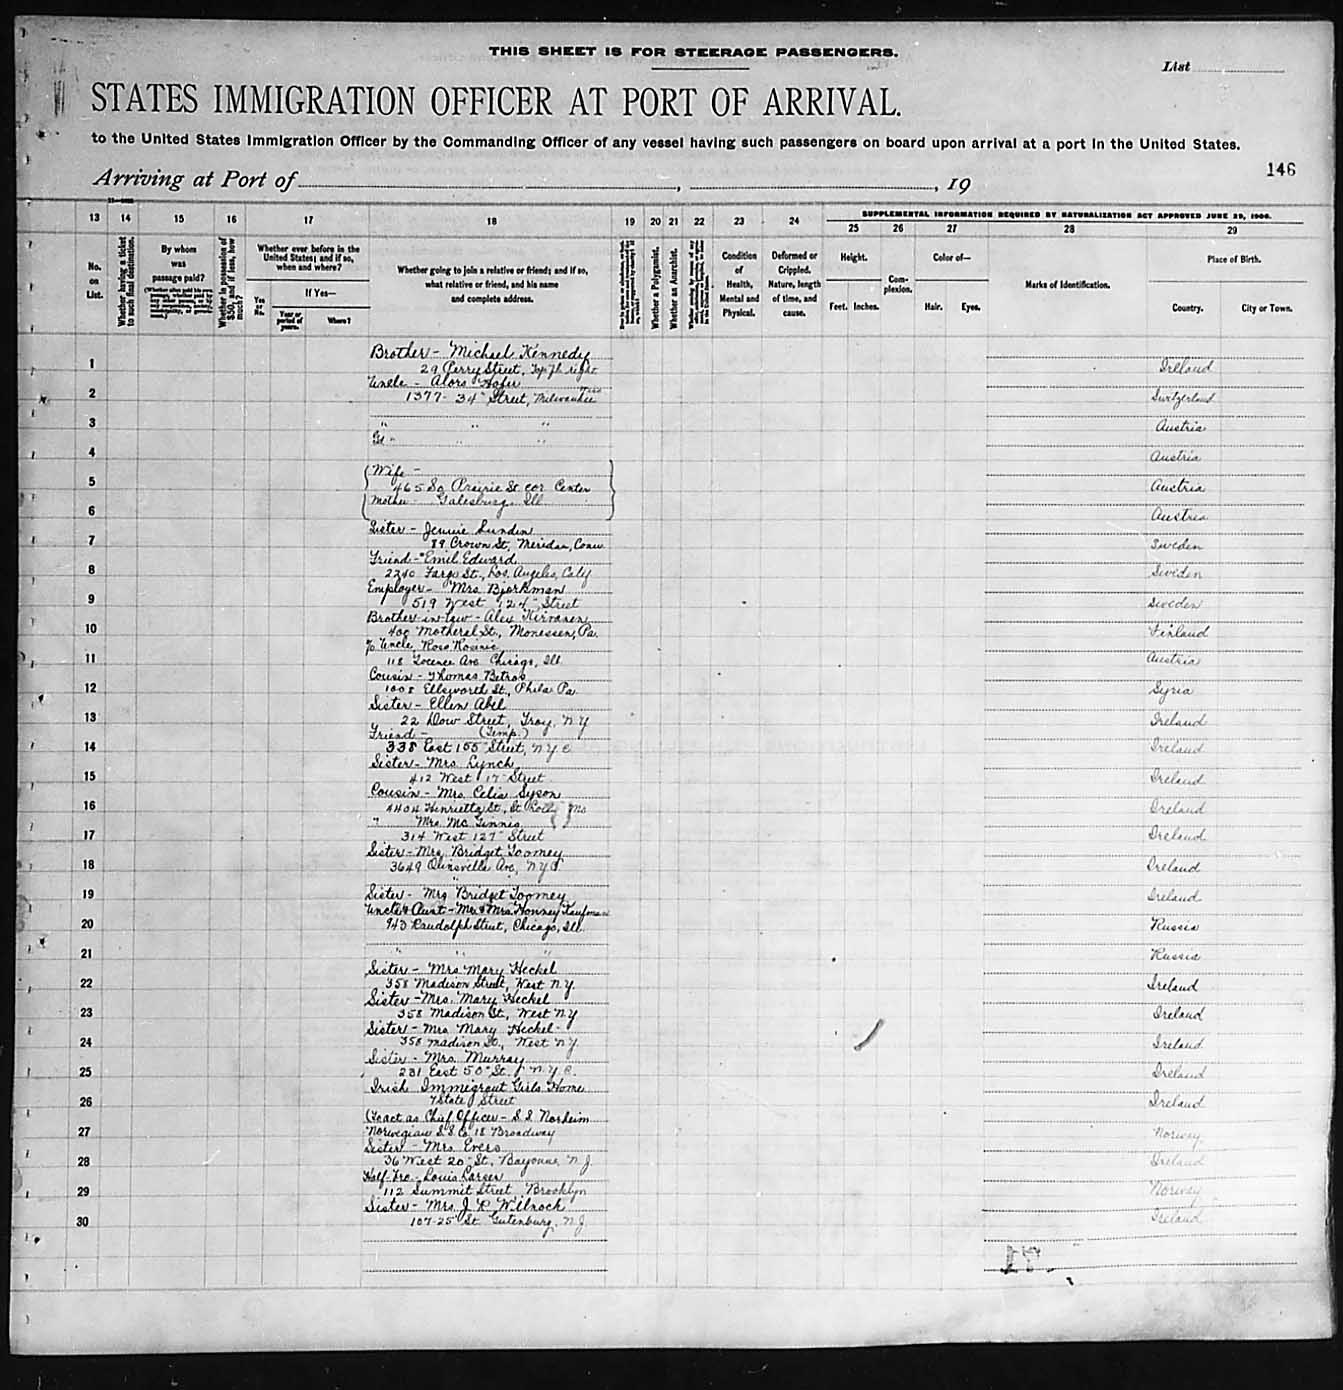 THIS SHEET IS FOR STEERAGE PASSENGERS.
List
STATES IMMIGRATION OFFICER AT PORT OF ARRIVAL.
to the United States Immigration Officer by the Commanding Officer of any vessel having such passengers on board upon arrival at a port in the United States.
Arriving at Port of , , 19
146
13 14 15 16 17 18 19 20 21 22 23 24
SUPPLEMENTAL INFORMATION REQUIRED BY NATURALIZATION ACT APPROVED JUNE 29, 1906.
25 26 27 28 29
No. on List.
Whether having a ticket to such final destination.
By whom was passage paid?
Whether in possession of $50, and if less, how much?
Whether ever before in the United States; and if so, when and where?
Yes or No.
If Yes—
Year or period of years.
Where?
Whether going to join a relative or friend; and if so, what relative or friend, and his name and complete address.
Whether a Polygamist.
Whether an Anarchist.
Condition of Health, Mental and Physical.
Deformed or Crippled. Nature, length of time, and cause.
Height.
Feet. Inches.
Com-plexion.
Color of—
Hair. Eyes.
Marks of Identification.
Place of Birth.
Country. City or Town.
Brother - Michael Kennedy
1 29 Perry Street, Top fl. right Ireland
Uncle - Alois Hofer
2 1377- 34" Street, Milwaukee Wis Switzerland
3 " " " Austria
4 " " Austria
Wife -
5 465 So Prairie St. cor Center Austria
Mother - Galesburg, Ill
6 Austria
Sister - Jennie Sundin
7 89 Crown St, Meriden, Conn Sweden
Friend - Emil Edward
8 2240 Fargo St., Los Angeles, Calif Sweden
Employer - Mrs Bjorkman
9 519 West 124" Street Sweden
Brother-in-law - Alex
10 400 Motheral St., Monessen, Pa. Finland
% Uncle,
11 118 Ave Chicago, Ill Austria
Cousin - Thomas Betros
12 1008 Ellsworth St., Phila Pa. Syria
Sister - Ellen Abel
13 22 Dow Street, Troy, N Y Ireland
Friend - (Temp.)
14 338 East 155" Street, N.Y.C. Ireland
Sister - Mrs. Lynch
15 412 West 17" Street Ireland
Cousin - Mrs. Celia Syson
16 4404 Henrietta St., St Mo Ireland
" Mrs. Mc Ginnis
17 314 West 127" Street Ireland
Sister - Mrs. Bridget Toomey
18 3649 Olinville Ave, N.Y.C. Ireland
"
19 Sister - Mrs Bridget Toomey Ireland
Uncle & Aunt - Mr & Mrs Kaufman
20 943 Randolph Street, Chicago, Ill. Russia
21 " " " Russia
Sister - Mrs Mary Heckel
22 358 Madison Street, West N.Y. Ireland
Sister - Mrs. Mary Heckel
23 358 Madison St., West N.Y Ireland
Sister - Mrs Mary Heckel
24 358 Madison St., West N.Y. Ireland
Sister - Mrs. Murray
25 231 East 50" St. N.Y.C. Ireland
Irish Immigrant Girls Home
26 7 State Street Ireland
(To act as Chief Officer - S.S. Norheim
27 Norwegian S.S. Co 18 Broadway Norway
Sister - Mrs. Evers
28 36 West 20" St., Bayonne, N.J. Ireland
Half-bro. - Louis Larsen
29 112 Summit Street, Brooklyn Norway
Sister - Mrs. J. P. Wilnock
30 107-25" St. Gutenburg, N.J. Ireland